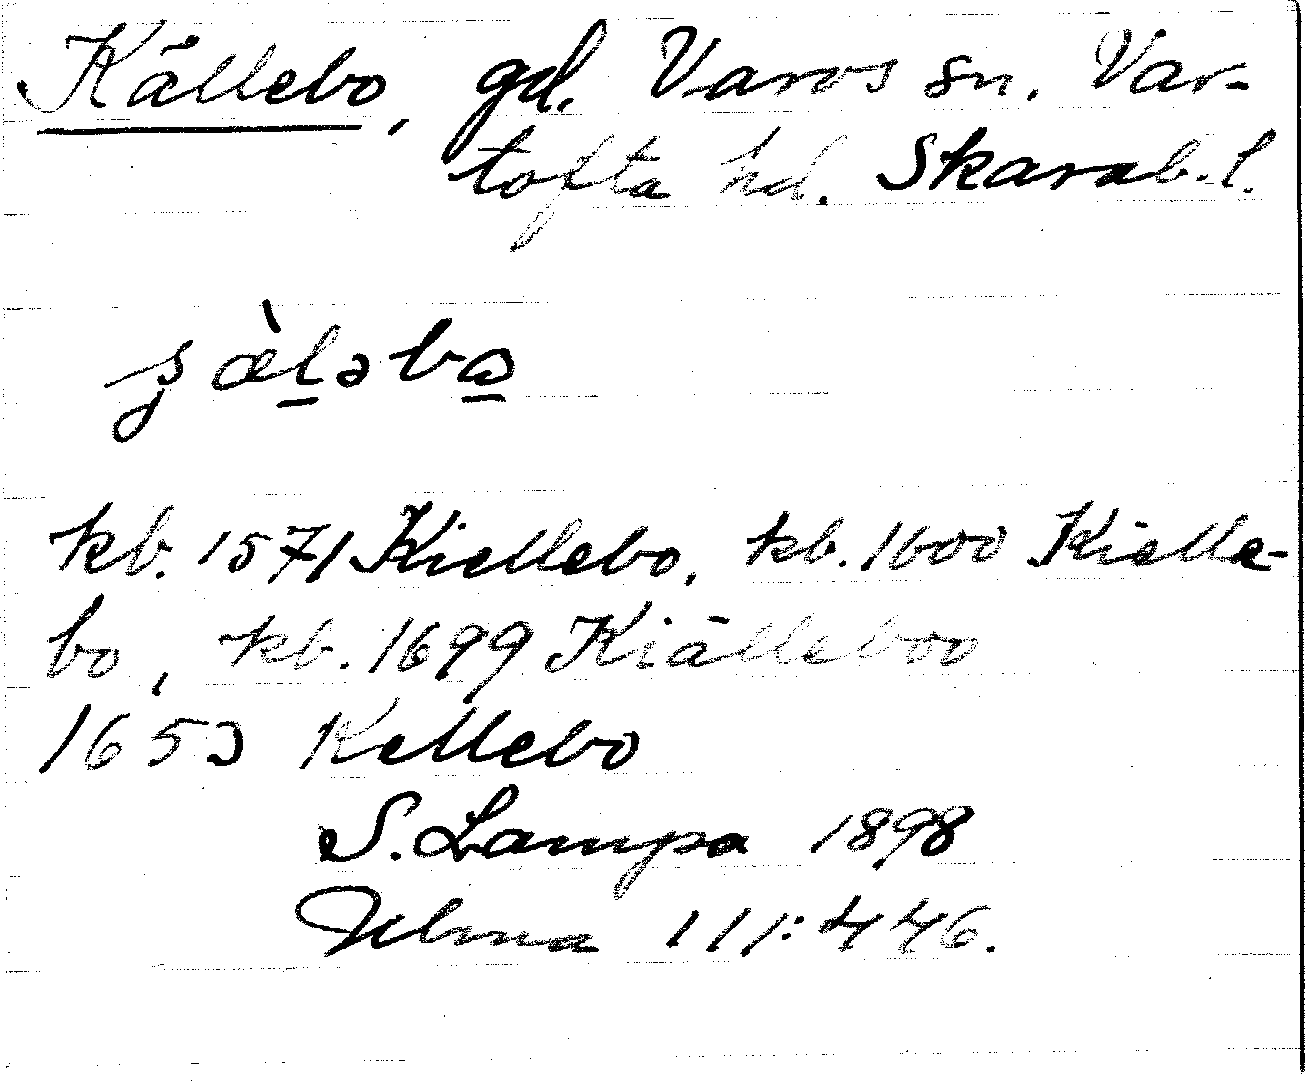 Källebo, gd. Varvs sn. Var-
tofta hd. Skarab. l.
kb. 1571 Kiellebo, kb. 1600 Kielle-
bo, kb. 1699 Kiälleboo
1653 Kellebo
S. Lampa 1898
Ulma 111:446.